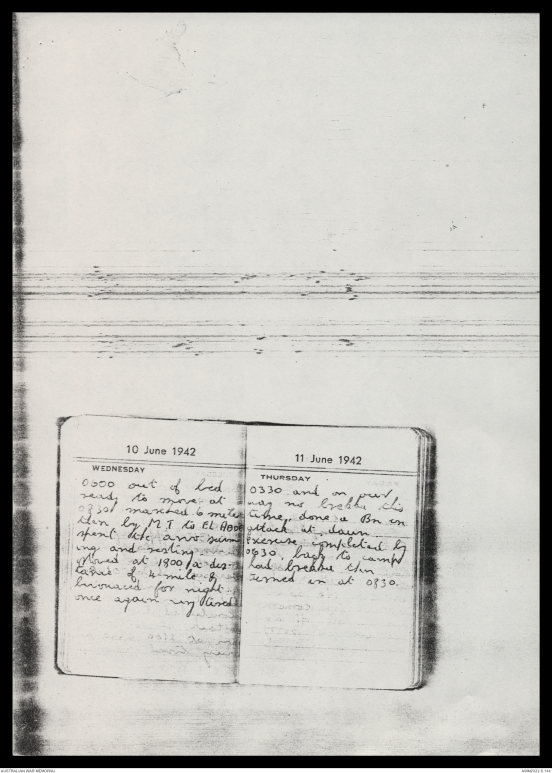 10 June 1942
WEDNESDAY
0600 out of bed
ready to move at
0730 marched 6 miles
then by M.T to El
spent the arvo swim
ing and resting.
Moved at 1800 a dis-
tance of 4 mile &
bivouaced for night
once again very tired
11 June 1942
THURSDAY
0330 and on our
way no breakie this
time, done a Bn in
attack at dawn
exercise completed by
0630, back to camp
had breakie then
turned in at 0830.
AUSTRALIAN WAR MEMORIAL